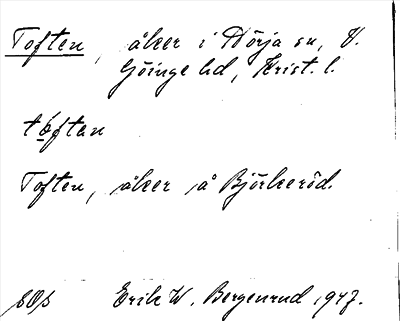 Toften, åker i Nörja sn, V.
Göinge hd, Krist. l.
tóftan
Toften, åker å Björkeröd.
Erik W. Bergenrud 1947.